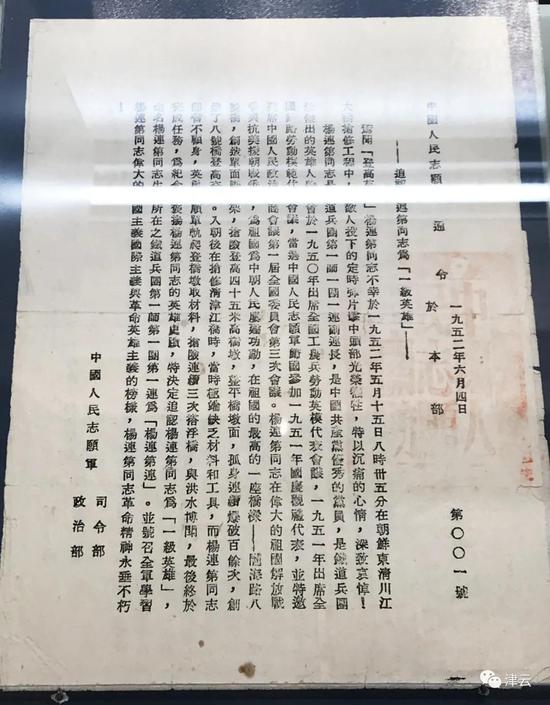 第〇〇一號
一九五二年六月四日
中國人民志願 通令 於本部
——追 連第同志爲「一級英雄」——
驚聞「登高英 」楊連第同志不幸於一九五二年五月十五日八時卅五分在朝鮮東清川江
大橋搶修工程中， 敵人投下的定時彈片擊中頭部光榮犧牲，特以沉痛的心情，深致哀悼！
楊連第同志是 道兵團第一師一團一連副連長，是中國共產黨優秀的黨員，是鐵道兵團
傑出的英雄人 會於一九五〇年出席全國工農兵勞動英模代表會議，一九五一年出席全
國鐵路勞動模範代 會議，當選中國人民志願軍歸國參加一九五一年國慶觀禮代表，並特邀
列席中國人民政治 商會議第一届全國委員會第三次會議。楊連第同志在偉大的祖國解放戰
爭與抗美援朝戰爭 爲祖國爲中朝人民屢建功勳，在祖國的最高的一座橋樑——隴海路八
號橋，創造單面 架，搶險登高四十五米高橋墩，整平橋墩面，孤身連續爆破百餘次，創
造了八號橋登高 。入朝後在搶修清津江橋時，當時極端缺乏材料和工具，而楊連第同志
即奮不顧身，英勇 順單軌爬登橋墩取材料，搶險連續三次搭浮橋，與洪水博鬥，最後終於
完成任務，爲紀念 揚楊連第同志的英雄史蹟，特決定追認楊連第同志爲「一級英雄」，
命名楊連第同志生 所在之鐵道兵團第一師第一團第一連爲「楊連第連」。並號召全軍學習
楊連第同志偉大的 國主義國際主義與革命英雄主義的榜樣，楊連第同志革命精神永垂不朽
！
中國人民志願軍 司令部
政治部
津云